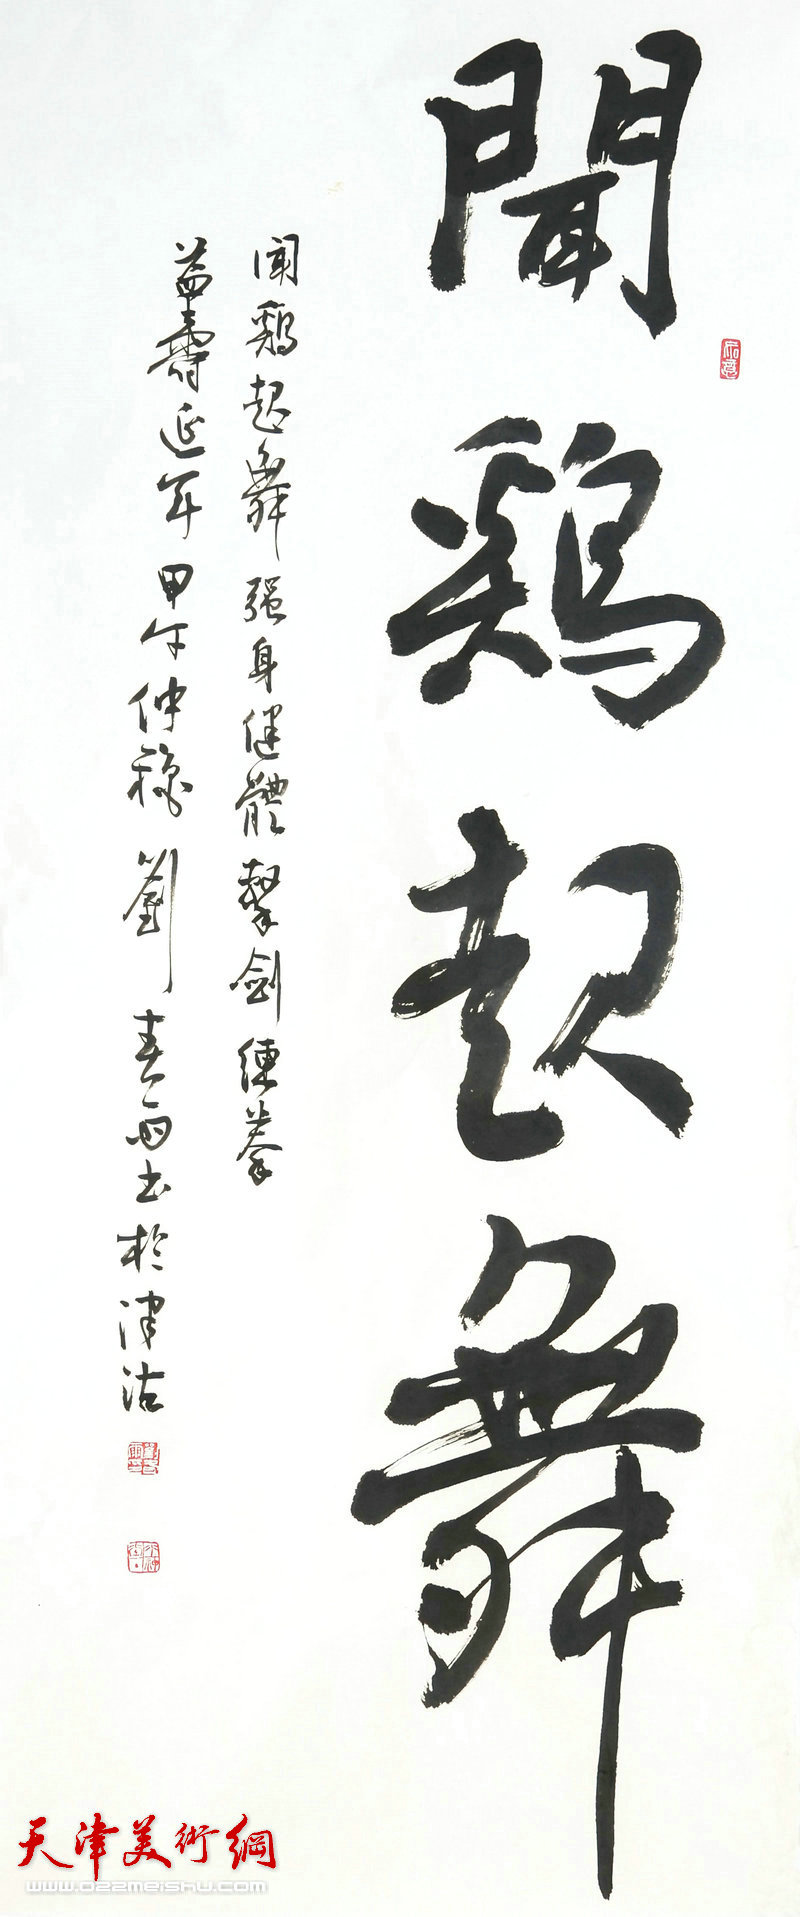 聞鷄起舞
闻鷄起舞强身健體擊剑練拳
益壽延年甲午仲穐劉春雨书於津沽
天津美術網
www.022meishu.com